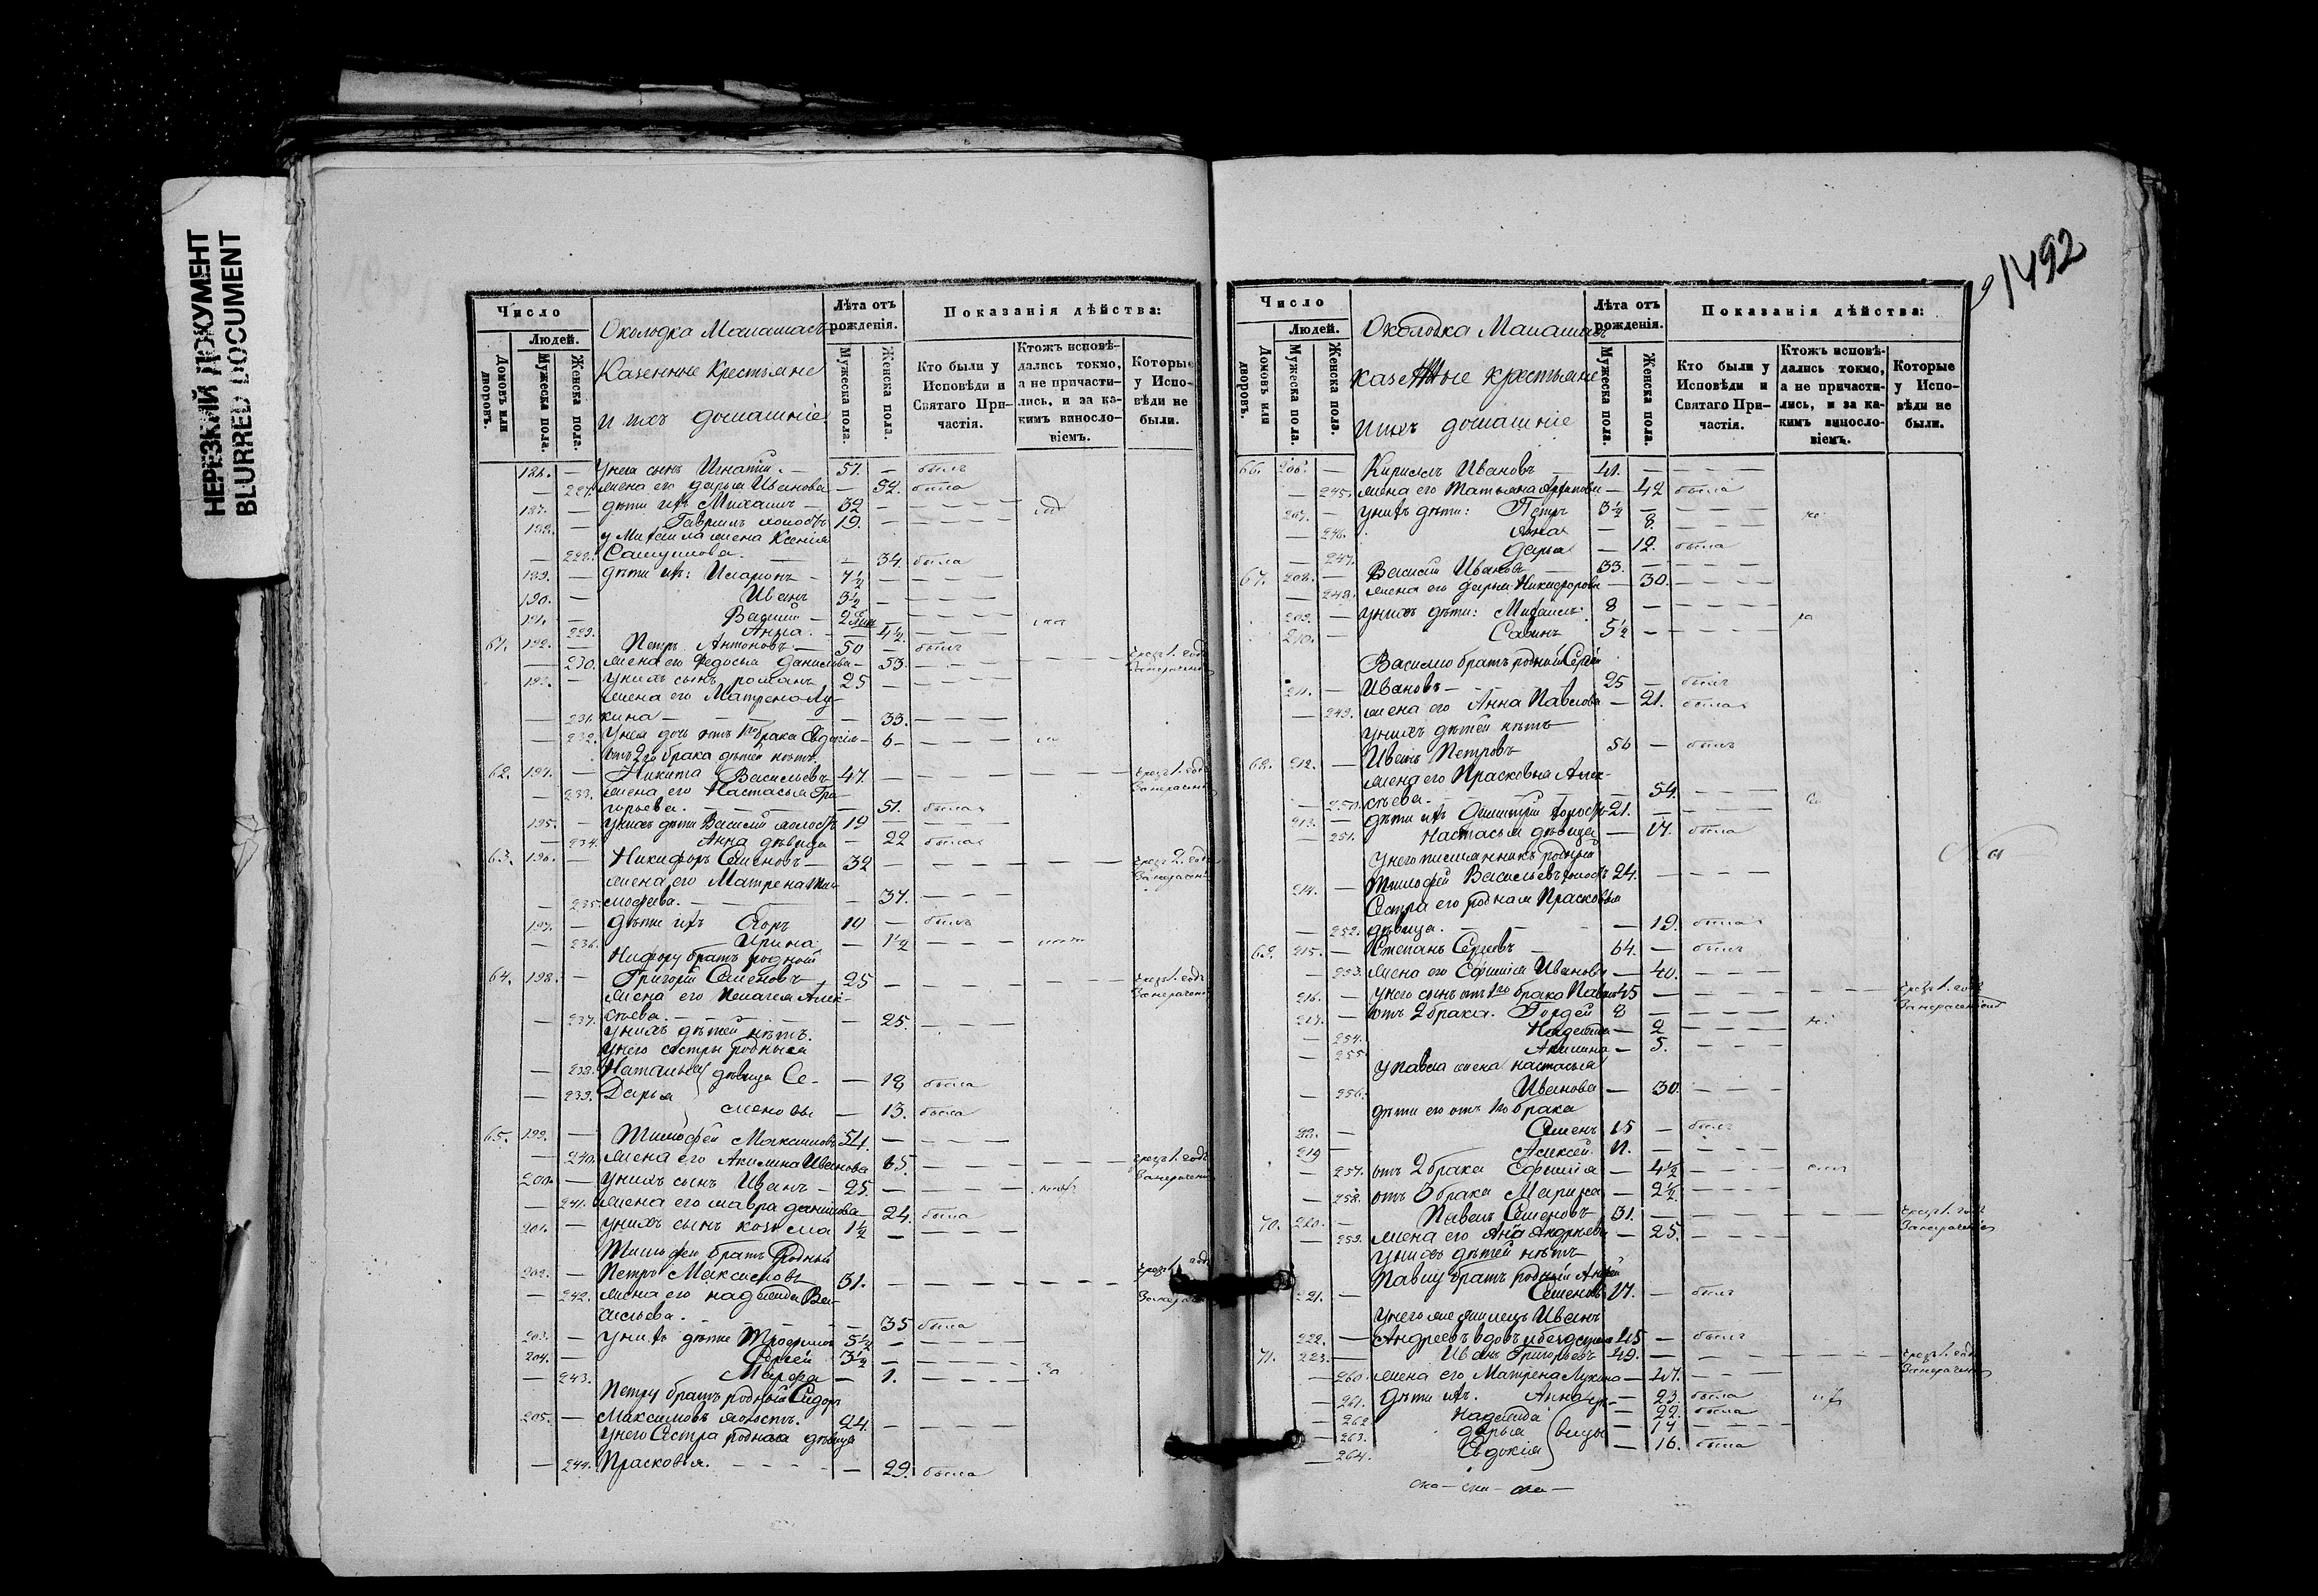 НЕРЕЗКИЙ ДОКУМЕНТ
BLURRED DOCUMENT
1492
Число
Людей.
Домовъ или дворовъ.
Мужеска пола.
Женска пола.
Околодка
Казенные Крестьяне
и ихъ домашніе
Лѣта отъ рожденія.
Мужеска пола.
Женска пола.
Показанія дѣйства:
Кто были у Исповѣди и Святаго Причастія.
Ктожъ исповѣдались токмо, а не причастились, и за какимъ винословіемъ.
Которые у Исповѣди не были.
186. — У него сынъ Игнатій. — 51. — былъ
— 227. жена его Дарья Иванова — 52. была
187. — дѣти ихъ Михаилъ — 32 —
188. — Гавриилъ холостъ 19. —
у Михаила жена Ксенія
— 228. — 34. была
189. — дѣти ихъ: Иларіонъ — 7½ —
190. — Иванъ 3½ —
191. — Василій —
— 229. Анна. — 4½.
61. 192. — Петръ Антоновъ — 50 — былъ
— 230. жена его Федосья Данилова — 53. —
193. — у нихъ сынъ Романъ 25 —
жена его Матрена Лу-
— 231. кина — 33. —
— 232. У нея дочь отъ 1го брака Евдокія — 6 —
отъ 2го брака дѣтей нѣтъ.
62. 194. — Никита Васильевъ 47. —
— 233. жена его Настасья Гри-
горьева. — 51. была
195. — у нихъ дѣти Василій холостъ 19 —
— 234. Анна дѣвица — 22 была
63. 196. — Никифоръ Семеновъ — 32 —
жена его Матрена Ти-
— 235. мофеева. — 37. —
197. — дѣти ихъ Егоръ 10 — былъ
— 236. Ирина — 1½ —
братъ родной
64. 198. — Григорій Семеновъ 25 —
жена его Пелагея Алек-
— 237. сѣева. — 25. —
у нихъ дѣтей нѣтъ.
у него сестры родныя
— 238. Наталья дѣвицы Се- — 18 была
— 239. Дарья меновы — 13. была
65. 199. — Тимофей Максимовъ 54. —
— 240. жена его Акилина Иванова 65. —
200. — у нихъ сынъ Иванъ — 25. —
— 241. жена его Мавра Данилова — 24. была
201. — у нихъ сынъ Козьма 1½ —
Тимофею братъ родный
202. — Петръ Максимовъ 31. —
— 242. жена его Надежда Ва-
сильева. — 35 была
203. — у нихъ дѣти Трофимъ 5½ —
204. — Сергей 3½ —
— 243. Марфа — 1. —
Петру братъ родный Сидоръ
205. — Максимовъ холостъ. 24. —
у него сестра родная дѣвица
— 244. Прасковья. — 29. была
Число
Людей.
Домовъ или дворовъ.
Мужеска пола.
Женска пола.
Околодка
казенные крестьяне
и ихъ домашніе
Лѣта отъ рожденія.
Мужеска пола.
Женска пола.
Показанія дѣйства:
Кто были у Исповѣди и Святаго Причастія.
Ктожъ исповѣдались токмо, а не причастились, и за какимъ винословіемъ.
Которые у Исповѣди не были.
66. 206. — Кириллъ Ивановъ — 41. —
— 245. жена его Татьяна Архипова — 42 была
207. — у нихъ дѣти: Петръ 3½ —
— 246. Анна — 8. —
— 247. Дарья — 12. была
67. 208. — Василій Ивановъ 33. —
— 248. жена его Дарья Никифорова — 30. —
209. — у нихъ дѣти: Михаилъ 8 —
210. — Савинъ 5½ —
Василію братъ родной Сергѣй
211. — Ивановъ — 25 — былъ
— 249. жена его Анна Павлова — 21. была
у нихъ дѣтей нѣтъ
68. 212. — Иванъ Петровъ 56 — былъ
жена его Прасковья Алек-
— 250. сѣева. — 54. —
213. — дѣти ихъ Димитрій холостъ 21. —
— 251. Настасья дѣвица — 17. была
у него племянникъ родный
214. — Тимофей Васильевъ холостъ 24. —
Сестра его родная Прасковья
— 252. дѣвица. — 19. была
69. 215. — Степанъ Сергѣевъ 64. — былъ
— 253. жена его Ефимія Иванова — 40. —
216. — у него сынъ отъ 1го брака Павелъ 45 —
217. — отъ 2 брака. Гордей 8 —
— 254. Надежда — 2 —
— 255. Акилина — 5. —
у Павла жена Настасья
— 256. Иванова — 30. —
дѣти его отъ 1го брака
218. — Семенъ 15 — былъ
219 — Алексей. 11. —
— 257. отъ 2 брака Ефимія — 4½ —
— 258. отъ 3 брака Марина — 2½ —
70. 220. — Павелъ Семеновъ — 31. —
— 259. жена его Анна Андреева — 25. —
у нихъ дѣтей нѣтъ
Павлу братъ родный Андрей
221. — Семеновъ 17. — былъ
222. — Андреевъ вдовъ и бездетный 45 — былъ
71. 223. — Иванъ Григорьевъ 49. —
— 260. жена его Матрена Лукина — 47. —
— 261. дѣти ихъ. Анна дѣ- — 23. была
— 262. Надежда — 22. была
— 263. Дарья вицы — 19 —
— 264. Евдокія — 16. была